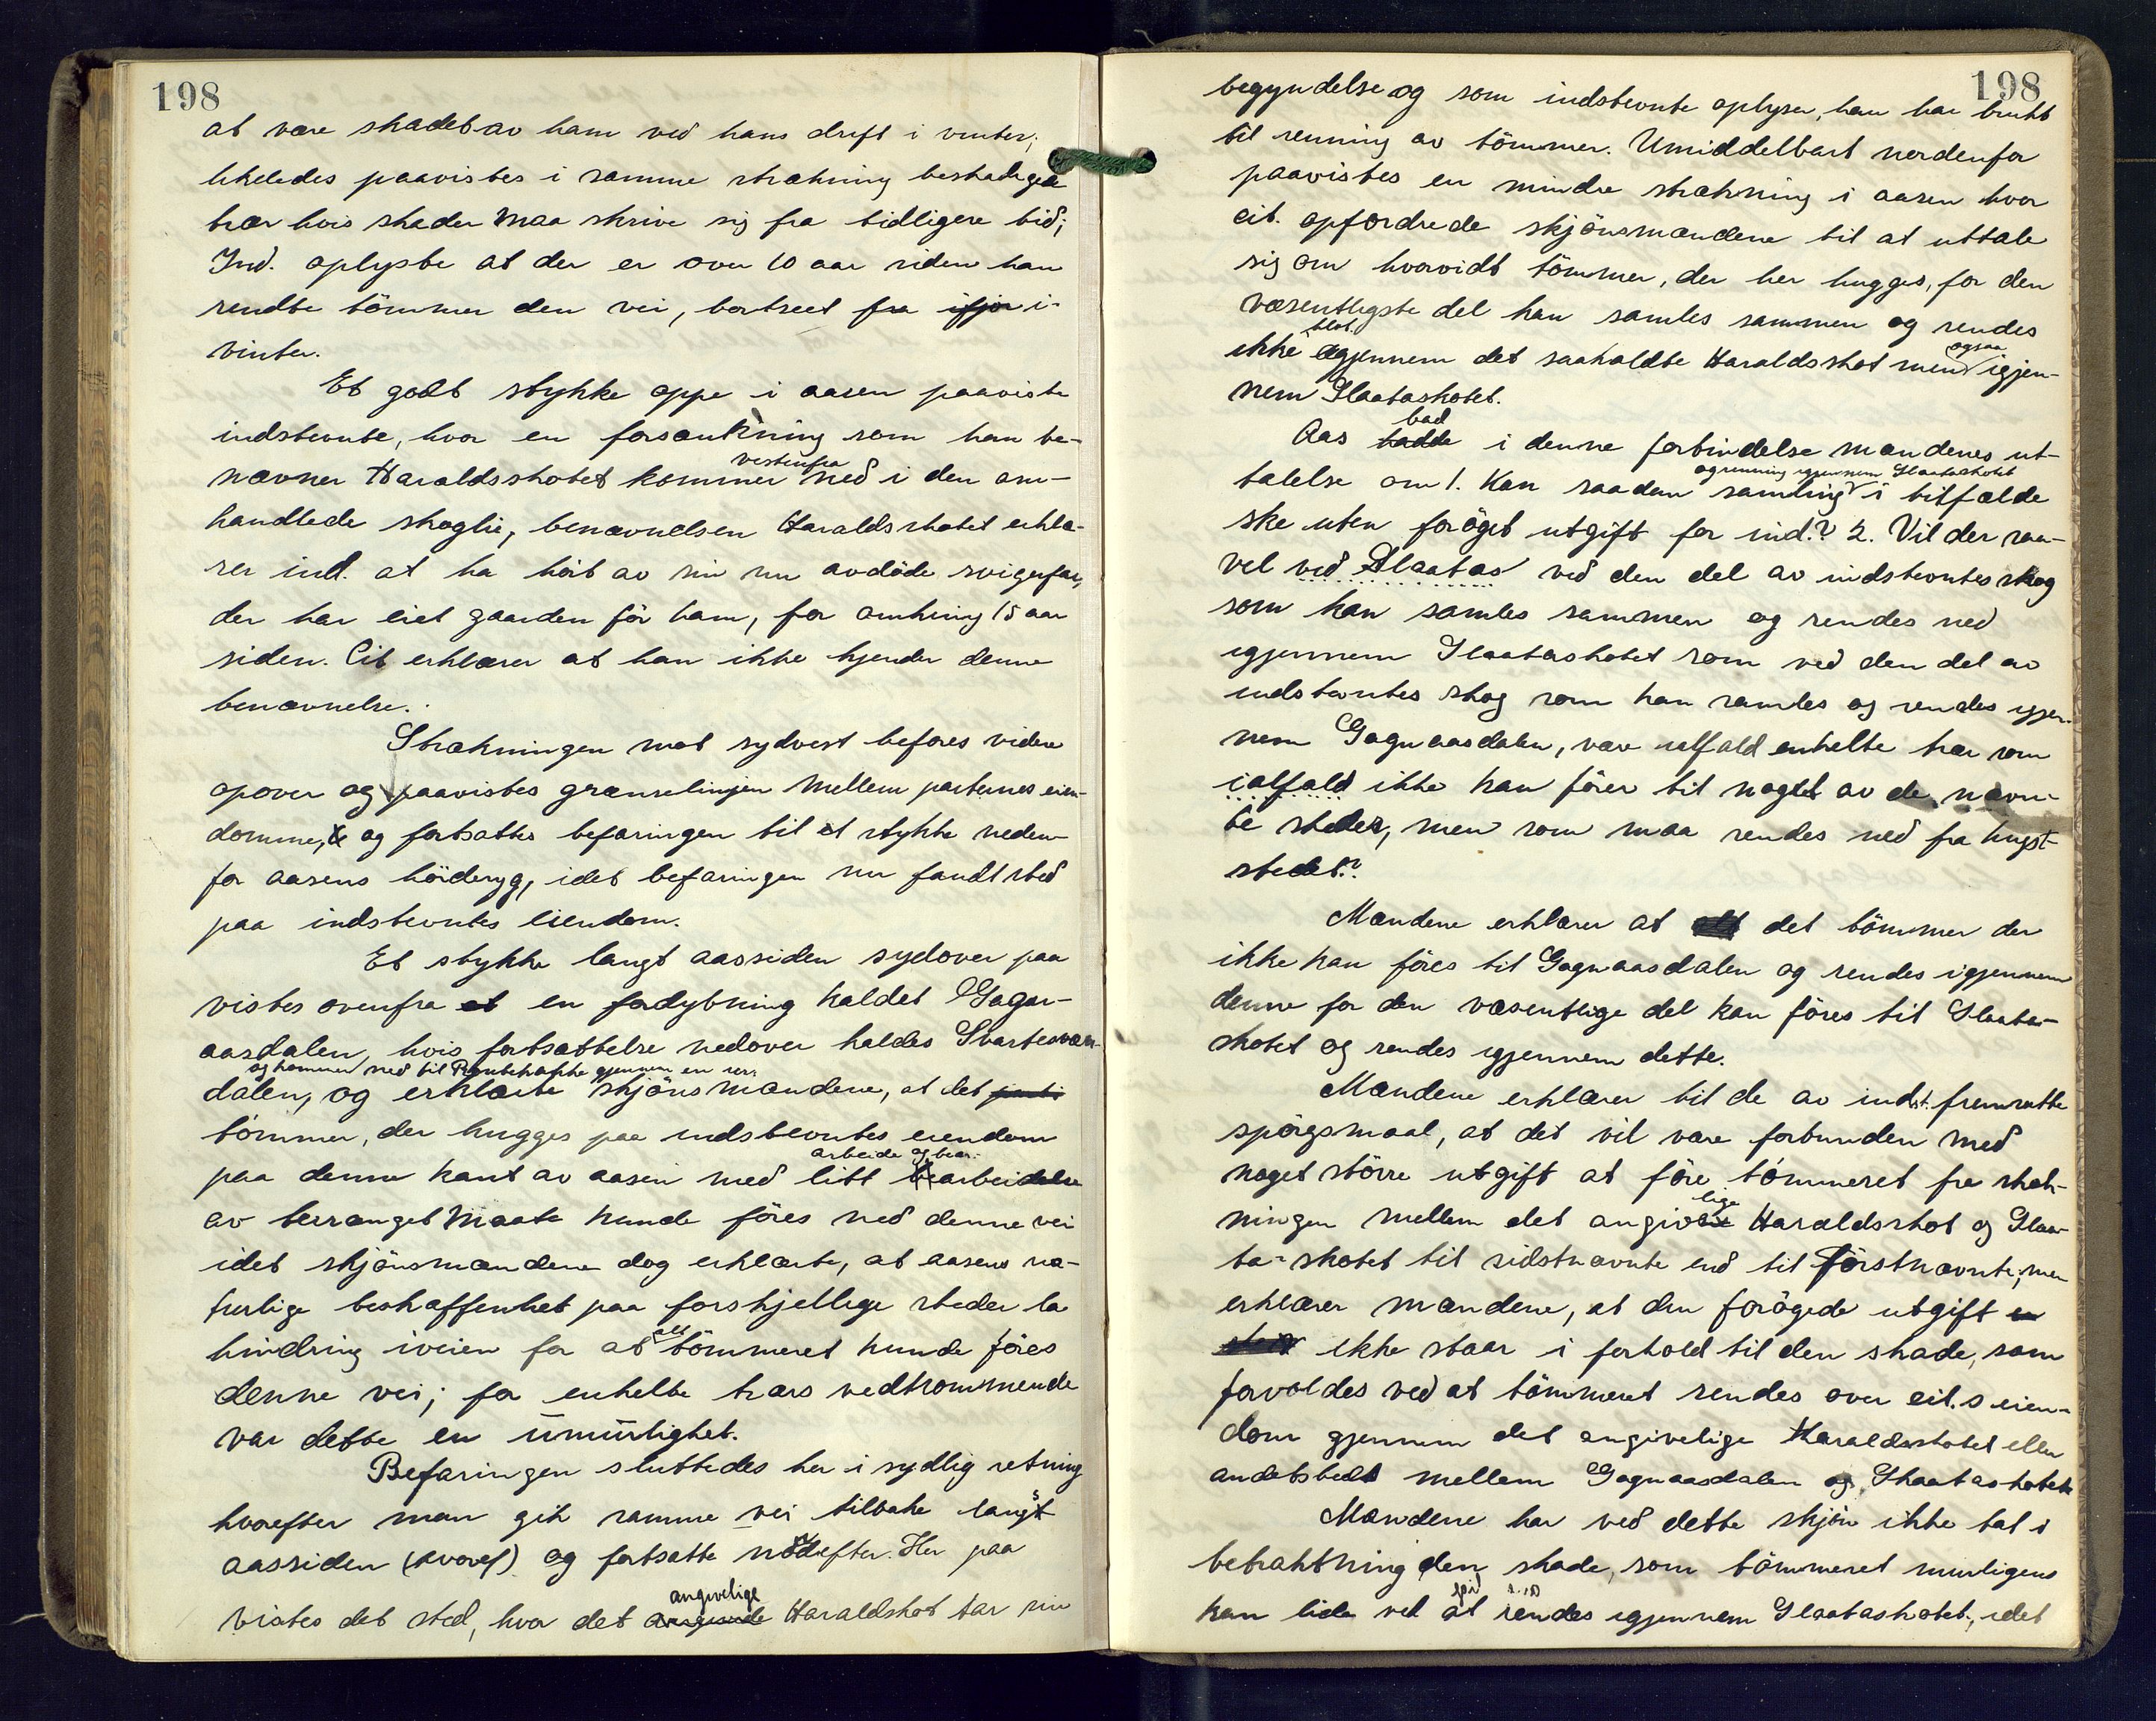 198
at være skadet av ham ved hans drift i vinter;
likeledes paavistes i samme strækning beskadigede
trær hvis skader maa skrive sig fra tidligere tid;
Ind. oplyste at der er over 10 aar siden han
rendte tömmer den vei, bortseet fra ifjor i-
vinter.
Et godt stykke oppe i aasen paaviste
indstevnte, hvor en forsænkning som han be-
vestenfra
nævner Haraldsskotet kommer ned i den om-
handlede skoglie, benævnelsen Haraldsskotet erklæ-
rer ind. at ha hört av sin nu avdöde svigerfar,
der har eiet gaarden för ham, for omkring 15 aar
siden. Cit erklærer at han ikke kjender denne
benævnelse.
Strækningen mot sydvest befares videre
opover og paavistes grænselinjen mellem parternes eien-
domme, og fortsattes befaringen til et stykke neden-
for aasens höideryg, idet befaringen nu fandt sted
paa indstevntes eiendom.
Et stykke langt aassiden sydover paa
vistes ovenfra et en fordypning kaldet Gagn-
aasdalen, hvis fortsættelse nedover kaldes
og kommer ned til gjennem en
dalen, og erklærte skjönsmændene, at det
tömmer, der hugges paa indstevntes eiendom
arbeide og bear-
paa denne kant av aasen med litt bearbeidelse
av terrænget maate kunde föres ned denne vei
idet skjönsmændene dog erklærte, at aasens na-
turlige beskaffenhet paa forskjellige steder la
all
hindring iveien for at tömmeret kunde föres
denne vei; for enkelte trærs vedkommende
var dette en umulighet.
Befaringen sluttedes her i sydlig retning
hvorefter man gik samme vei tilbake langs
aassiden (hvoref) og fortsatte nordefter. Her paa
angivelige
vistes det sted, hvor det angivende Haraldskot tar sin
198
begyndelse og som indstevnte oplyser, han har brukt
til renning av tömmer. Umiddelbart nordenfor
paavistes en mindre strækning i aasen hvor
cit. opfordrede skjönsmændene til at uttale
sig om hvorvidt tömmer, der her hugges, for den
væsentligste del kan samles sammen og rendes
blot ogsaa
ikke igjennem det saakaldte Haraldsskot men igjen-
nem Slaataskotet.
bad
Aas hadde i denne forbindelse mændenes ut-
og renning igjennem Slaataskotet
talelse om 1. Kan saadan samling i tilfælde
ske uten foröget utgift for ind.? 2. Vil der saa-
vel ved Slaatas ved den del av indstevntes skog
som kan samles sammen og rendes ned
igjennem Slaataskotet som ved den del av
indstevntes skog som kan samles og rendes igjen-
nem Gagnaasdalen, være ialfald enkelte trær som
ialfald ikke kan föres til noget av de nævn-
te steder, men som maa rendes ned fra hugst-
stedet?
Mændene erklærer at alt det tömmer der
ikke kan föres til Gagnaasdalen og rendes igjennem
denne for den væsentlige del kan föres til Slaata-
skotet og rendes igjennem dette.
Mændene erklærer til de av indst. fremsatte
spörgsmaal, at det vil være forbunden med
noget större utgift at före tömmeret fra stræk-
lige
ningen mellem det angivne Haraldsskot og Slaa-
ta-skotet til sidstnævnte end til förstnævnte, men
erklærer mændene, at den forögede utgift er
ikke staar i forhold til den skade, som
forvoldes ved at tömmeret rendes over cit.s eien-
dom gjennem det angivelige Haraldsskotet eller
andetsteds mellem Gagnaasdalen og Slaataskotet.
Mændene har ved dette skjön ikke tat i
betraktning den skade, som tömmeret muligens
kan lide ved at rendes igjennem Slaataskotet, idet